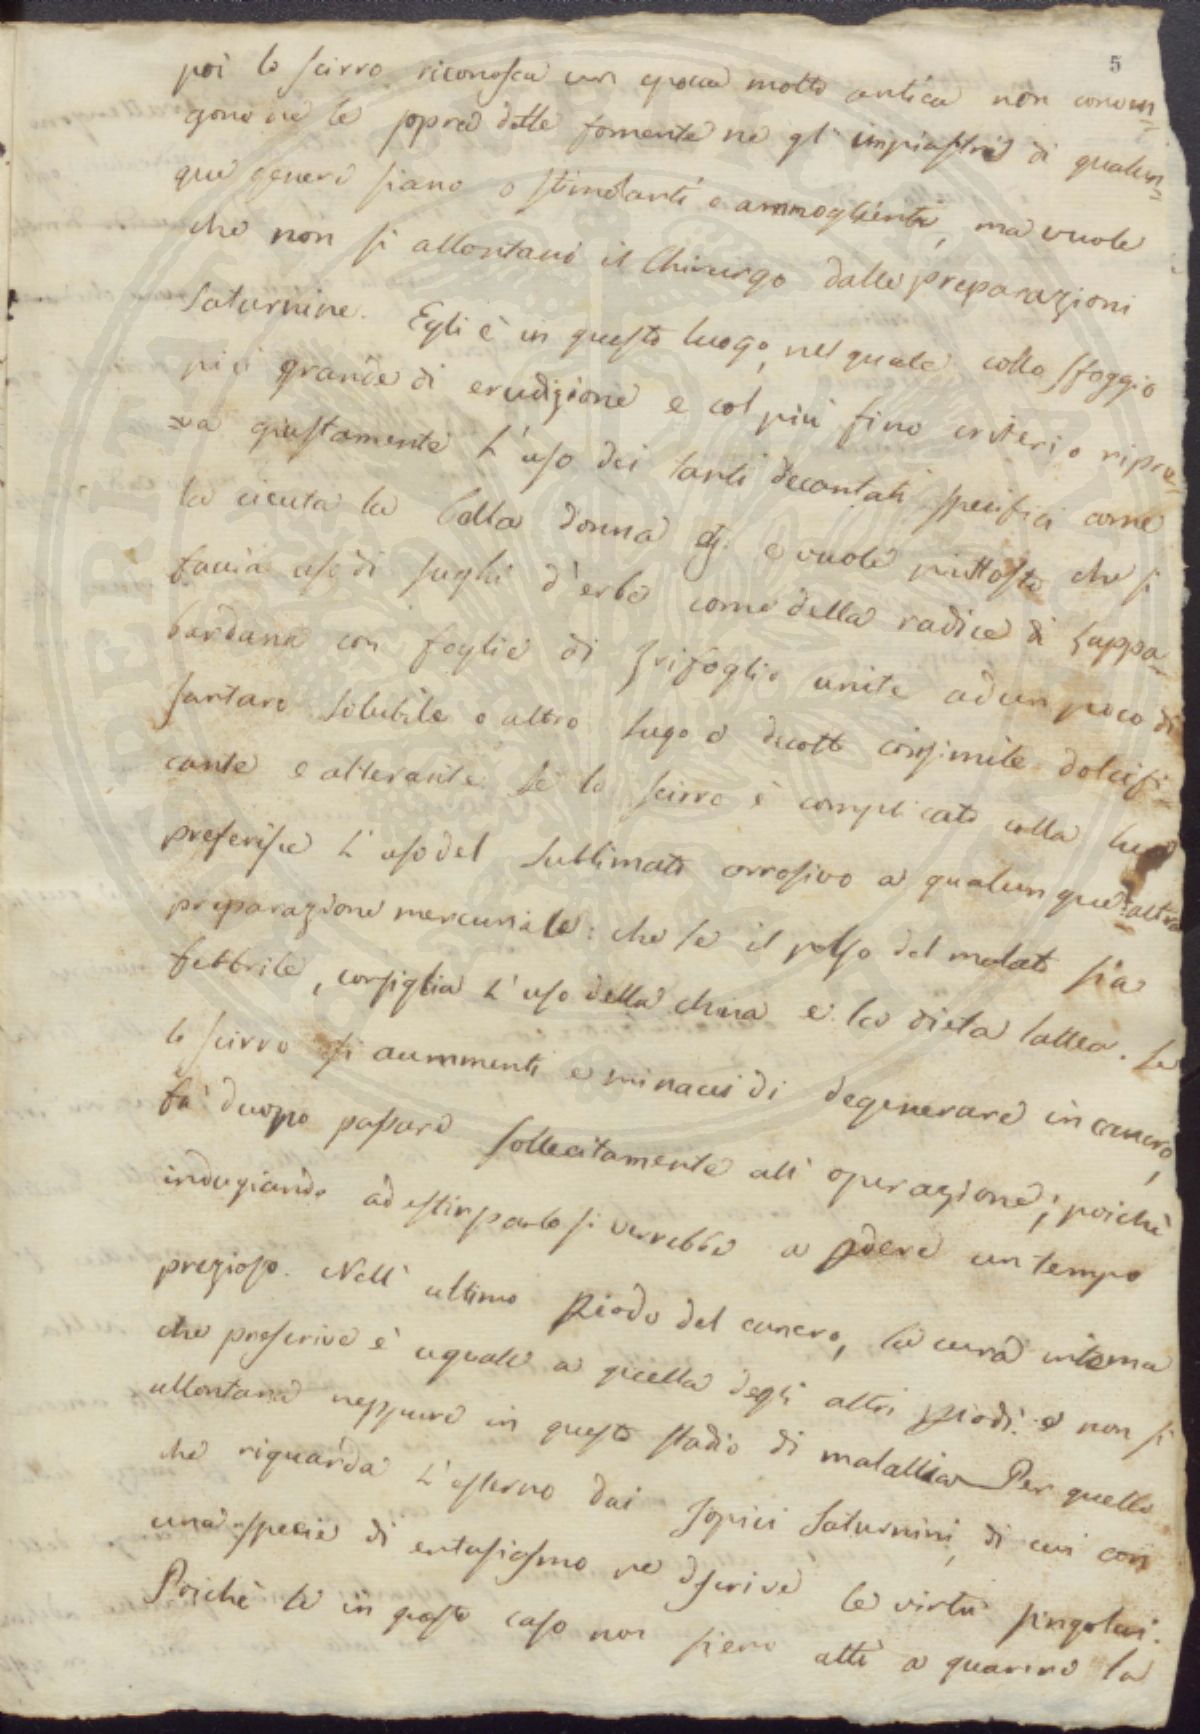 5
poi lo scirro riconosca un epoca molto antica non conven=
gono nè le sopra dette fomente nè gl'impiastri di qualun=
que genere siano o stimolanti o ammoglienti, ma vuole
che non si allontani il Chirurgo dalle preparazioni
Saturnine. Egli è in questo luogo, nel quale collo sfoggio
più grande di erudizione e col più fino criterio ripro=
va giustamente l'uso dei tanti decantati specifici come
la cicuta la bella donna e vuole piuttosto che si
faccia uso di sughi d'erbe come della radice di Lappa=
bardana con foglie di Trifoglio unite ad un poco di
Tartaro solubile o altro sugo o decotto consimile dolcifi=
cante e alterante. Se lo scirro è complicato colla lue
preferisce l'uso del sublimato corrosivo a qualunque altra
preparazione mercuriale: che se il polso del malato sia
febbrile, consiglia l'uso della china e la dieta lattea. Se
lo scirro si aummenti e minacci di degenerare in cancro,
fa duopo passare sollecitamente all'operazione; poichè
indugiando ad estirparlo si verrebbe a pdere un tempo
prezioso. Nell'ultimo piodo del cancro, la cura interna
che prescrive è uguale a quella degli altri piodi. e non si
allontana neppure in questo stadio di malattia Per quello
che riguarda l'esterno dai Topici Saturnini, di cui con
una specie di entusiasmo ne dscrive le virtù singolari.
Poichè se in questo caso non sieno atti a guarire la